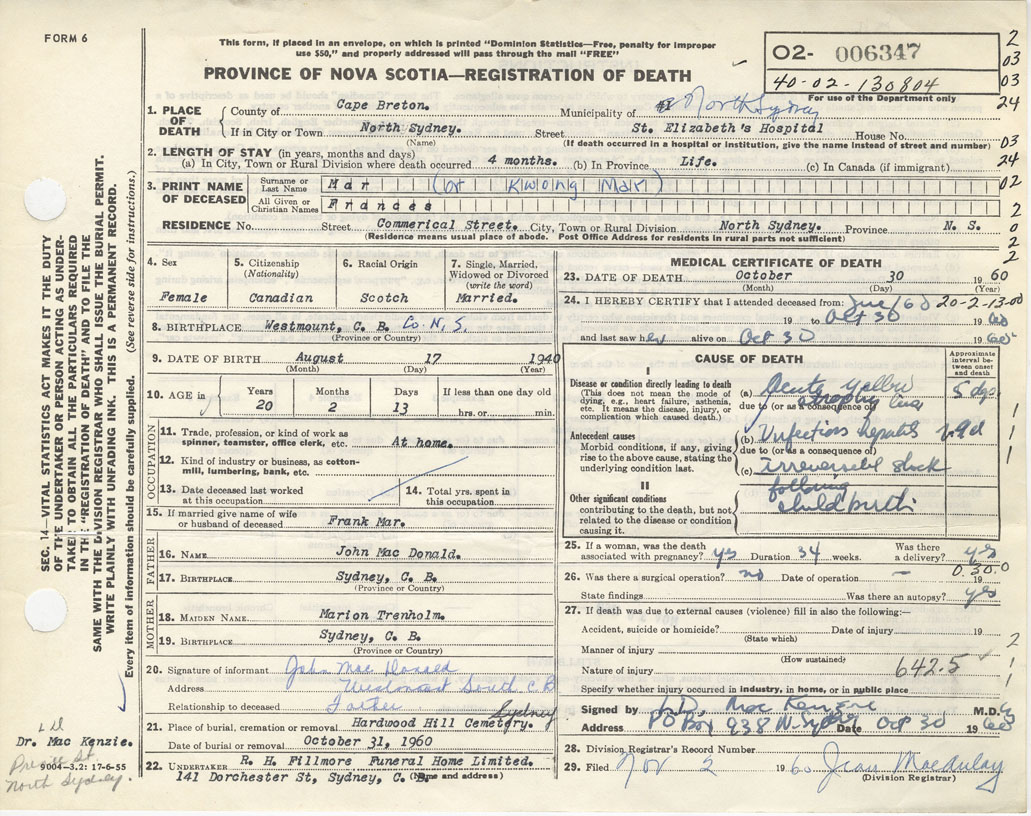 FORM 6
This form, if placed in an envelope, on which is printed "Dominion Statistics—Free, penalty for improper
use $50," and properly addressed will pass through the mail "FREE"
PROVINCE OF NOVA SCOTIA—REGISTRATION OF DEATH
O2- 006347
40-02-130804
For use of the Department only
2
03
03
24
1. PLACE OF DEATH
County of Cape Breton. Municipality of North Sydney
If in City or Town North Sydney. Street St. Elizabeth's Hospital House No.
(Name) (If death occurred in a hospital or institution, give the name instead of street and number)
03
24
2. LENGTH OF STAY (in years, months and days)
(a) In City, Town or Rural Division where death occurred 4 months. (b) In Province Life. (c) In Canada (if immigrant)
3. PRINT NAME OF DECEASED
Surname or Last Name Mar (or Kwoing Marr)
02
All Given or Christian Names Frances
2
0
2
RESIDENCE No. Street Commerical Street. City, Town or Rural Division North Sydney. Province N. S.
(Residence means usual place of abode. Post Office Address for residents in rural parts not sufficient)
SEC. 14—VITAL STATISTICS ACT MAKES IT THE DUTY
OF THE UNDERTAKER OR PERSON ACTING AS UNDER-
TAKER TO OBTAIN ALL THE PARTICULARS REQUIRED
IN THE "REGISTRATION OF DEATH" AND TO FILE THE
SAME WITH THE DIVISION REGISTRAR WHO SHALL ISSUE THE BURIAL PERMIT.
WRITE PLAINLY WITH UNFADING INK. THIS IS A PERMANENT RECORD.
Every item of information should be carefully supplied. (See reverse side for instructions.)
4. Sex
Female
5. Citizenship
(Nationality)
Canadian
6. Racial Origin
Scotch
7. Single, Married, Widowed or Divorced
(write the word)
Married.
8. BIRTHPLACE Westmount, C. B. Co. N. S.
(Province or Country)
9. DATE OF BIRTH August 17 1940
(Month) (Day) (Year)
10. AGE in
Years Months Days If less than one day old
20 2 13 hrs. or min.
OCCUPATION
11. Trade, profession, or kind of work as
spinner, teamster, office clerk, etc. At home.
12. Kind of industry or business, as cotton-
mill, lumbering, bank, etc.
13. Date deceased last worked
at this occupation
14. Total yrs. spent in
this occupation
15. If married give name of wife
or husband of deceased Frank Mar.
FATHER
16. NAME John Mac Donald.
17. BIRTHPLACE Sydney, C. B.
(Province or Country)
MOTHER
18. MAIDEN NAME Marion Trenholm.
19. BIRTHPLACE Sydney, C. B.
(Province or Country)
20. Signature of informant John Mac Donald
Address Westmount South C B
Relationship to deceased Father
21. Place of burial, cremation or removal Hardwood Hill Cemetery. Sydney
Date of burial or removal October 31, 1960
22. UNDERTAKER R. H. Fillmore Funeral Home Limited.
141 Dorchester St, Sydney, C. B. (Name and address)
Dr. Mac Kenzie.
9004-3.2: 17-6-55
North Sydney.
MEDICAL CERTIFICATE OF DEATH
23. DATE OF DEATH October 30 1960
(Month) (Day) (Year)
24. I HEREBY CERTIFY that I attended deceased from: 20-2-13-00
19 to Oct 30 1960
and last saw her alive on Oct 30 1960
CAUSE OF DEATH
Approximate interval between onset and death
I
Disease or condition directly leading to death
(This does not mean the mode of
dying, e.g., heart failure, asthenia,
etc. It means the disease, injury, or
complication which caused death.)
(a) Acute yellow
atrophy liver
5 dys.
due to (or as a consequence of)
Antecedent causes
Morbid conditions, if any, giving
rise to the above cause, stating the
underlying condition last.
(b) Infectious hepatitis
due to (or as a consequence of)
(c) irreversible shock
II
Other significant conditions
contributing to the death, but not
related to the disease or condition
causing it.
following
childbirth
1
1
25. If a woman, was the death
associated with pregnancy? yes Duration 34 weeks. Was there
a delivery? yes
26. Was there a surgical operation? no Date of operation — 19
0.30.0
State findings Was there an autopsy? yes
27. If death was due to external causes (violence) fill in also the following:—
Accident, suicide or homicide? Date of injury 19
(State which)
Manner of injury
(How sustained)
Nature of injury 642.5
Specify whether injury occurred in industry, in home, or in public place
2
1
1
Signed by Mac Kenzie M.D.
Address PO Box 938 N. Sydney Date Oct 30 1960
28. Division Registrar's Record Number
29. Filed Nov 2 1960 Jean Macaulay
(Division Registrar)